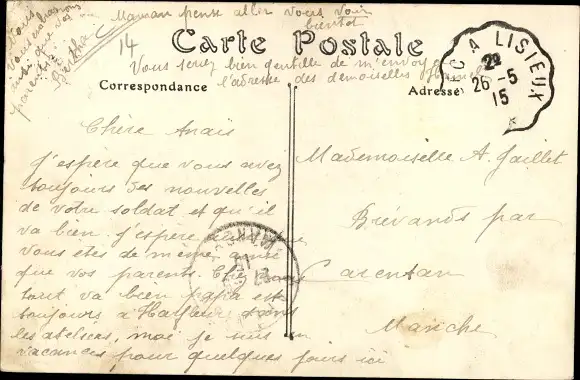 Maman pense aller vous voir
bientôt
14
Carte Postale
Vous serez bien gentille de m'envoy
l'adresse des demoiselles
Correspondance
Adresse
LISIEUX
26-5
15
Chère Anaïs
J'espère que vous avez
toujours des nouvelles
de votre soldat et qu'il
va bien. J'espère
vous êtes de même ainsi
que vos parents.
tout va bien papa est
toujours a Harfleur dans
les ateliers, moi je suis en
vacances pour quelques jours ici
Nous
vous embrassons
ainsi que vos
parents
Berthe
Mademoiselle A. Jaillet
Brévands par
Carentan
Manche